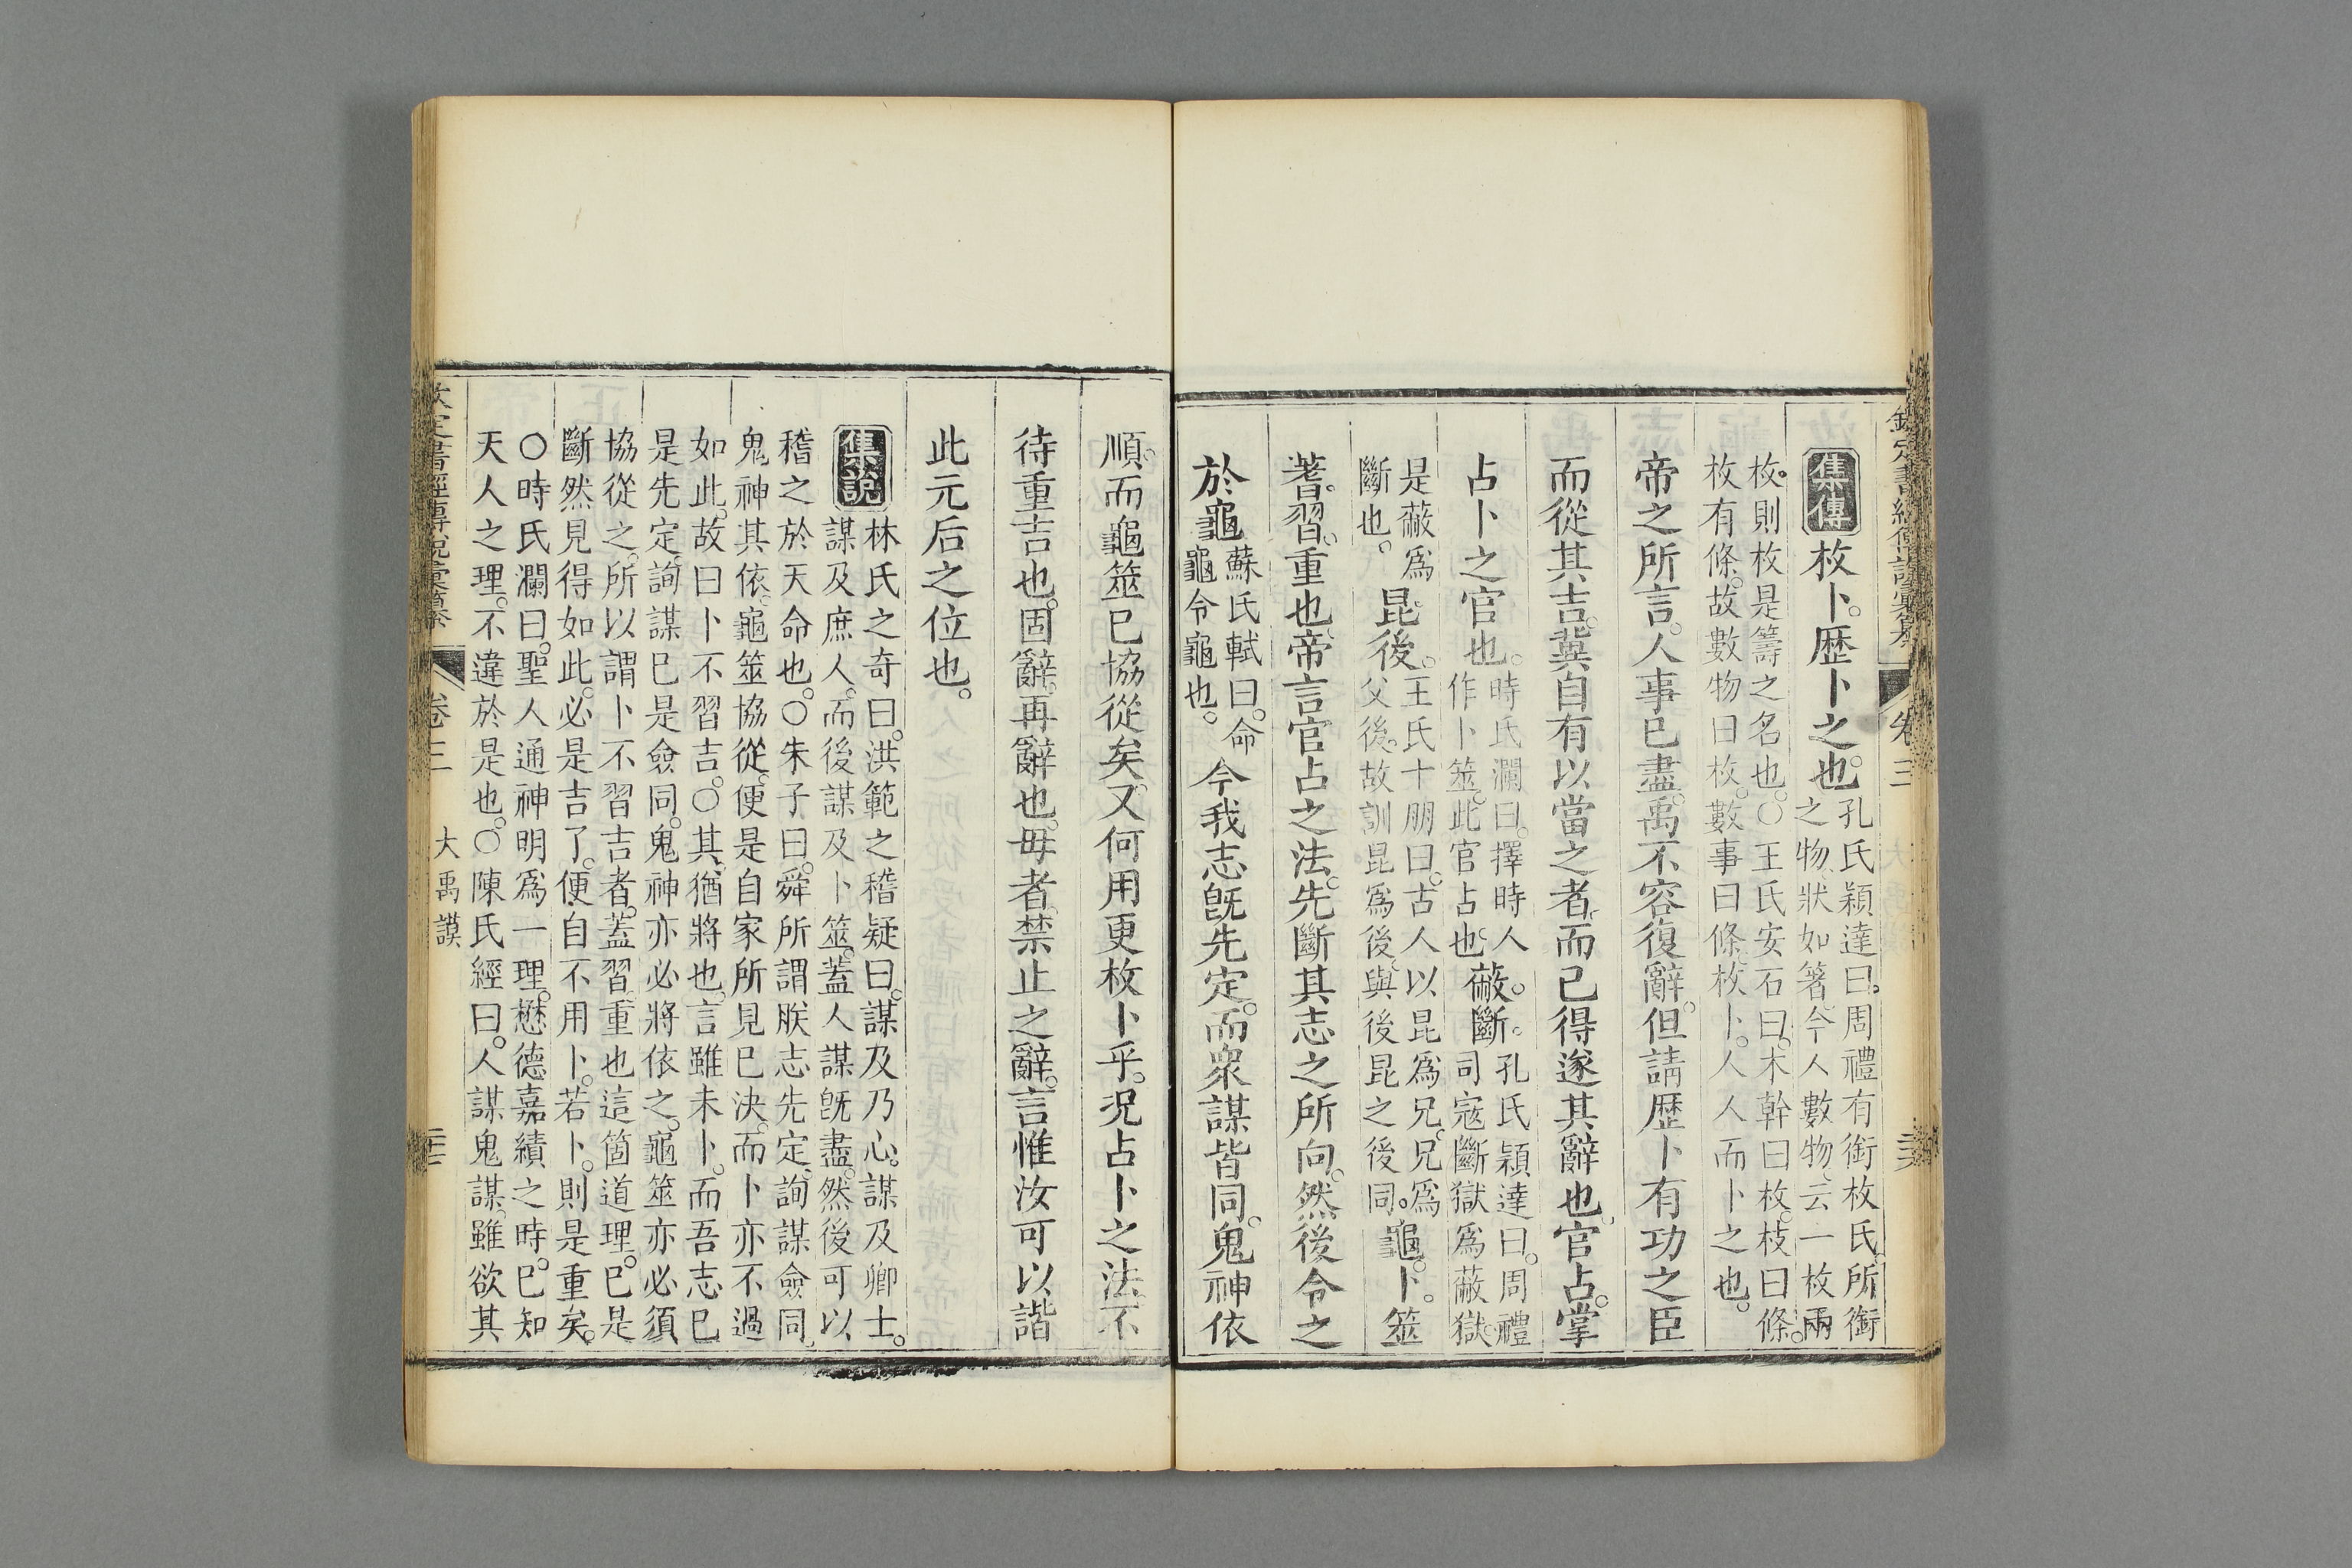 集傳 枚卜。歷卜之也。孔氏穎達曰。周禮有銜枚氏。所銜
之物。狀如箸。今人數物。云一枚兩
枚。則枚是籌之名也。○王氏安石曰。木幹曰枚。枝曰條。
枚有條。故數物曰枚。數事曰條。枚卜。人人而卜之也。
帝之所言。人事已盡。禹不容復辭。但請歷卜有功之臣
而從其吉。冀自有以當之者。而已得遂其辭也。官占。掌
占卜之官也。時氏瀾曰。擇時人
作卜筮。此官占也。蔽。斷。孔氏穎達曰。周禮
司寇斷獄爲蔽獄。
是蔽爲
斷也。昆。後。王氏十朋曰。古人以昆爲兄。兄爲
父後。故訓昆爲後。與後昆之後同。龜。卜。筮
蓍。習。重也。帝言官占之法。先斷其志之所向。然後令之
於龜。蘇氏軾曰。命
龜令龜也。今我志旣先定。而衆謀皆同。鬼神依
順。而龜筮已協從矣。又何用更枚卜乎。況占卜之法。不
待重吉也。固辭。再辭也。毋者。禁止之辭。言惟汝可以諧
此元后之位也。
集說 林氏之奇曰。洪範之稽疑曰。謀及乃心。謀及卿士。
謀及庶人。而後謀及卜筮。蓋人謀旣盡。然後可以
稽之於天命也。○朱子曰。舜所謂朕志先定。詢謀僉同。
鬼神其依。龜筮協從。便是自家所見已決。而卜亦不過
如此。故曰卜不習吉。○其。猶將也。言雖未卜。而吾志已
是先定。詢謀已是僉同。鬼神亦必將依之。龜筮亦必須
協從之。所以謂卜不習吉者。蓋習。重也。這箇道理。已是
斷然見得如此。必是吉了。便自不用卜。若卜。則是重矣。
○時氏瀾曰。聖人通神明爲一理。懋德嘉績之時。已知
天人之理。不違於是也。○陳氏經曰。人謀鬼謀。雖欲其
卷三 大禹謨